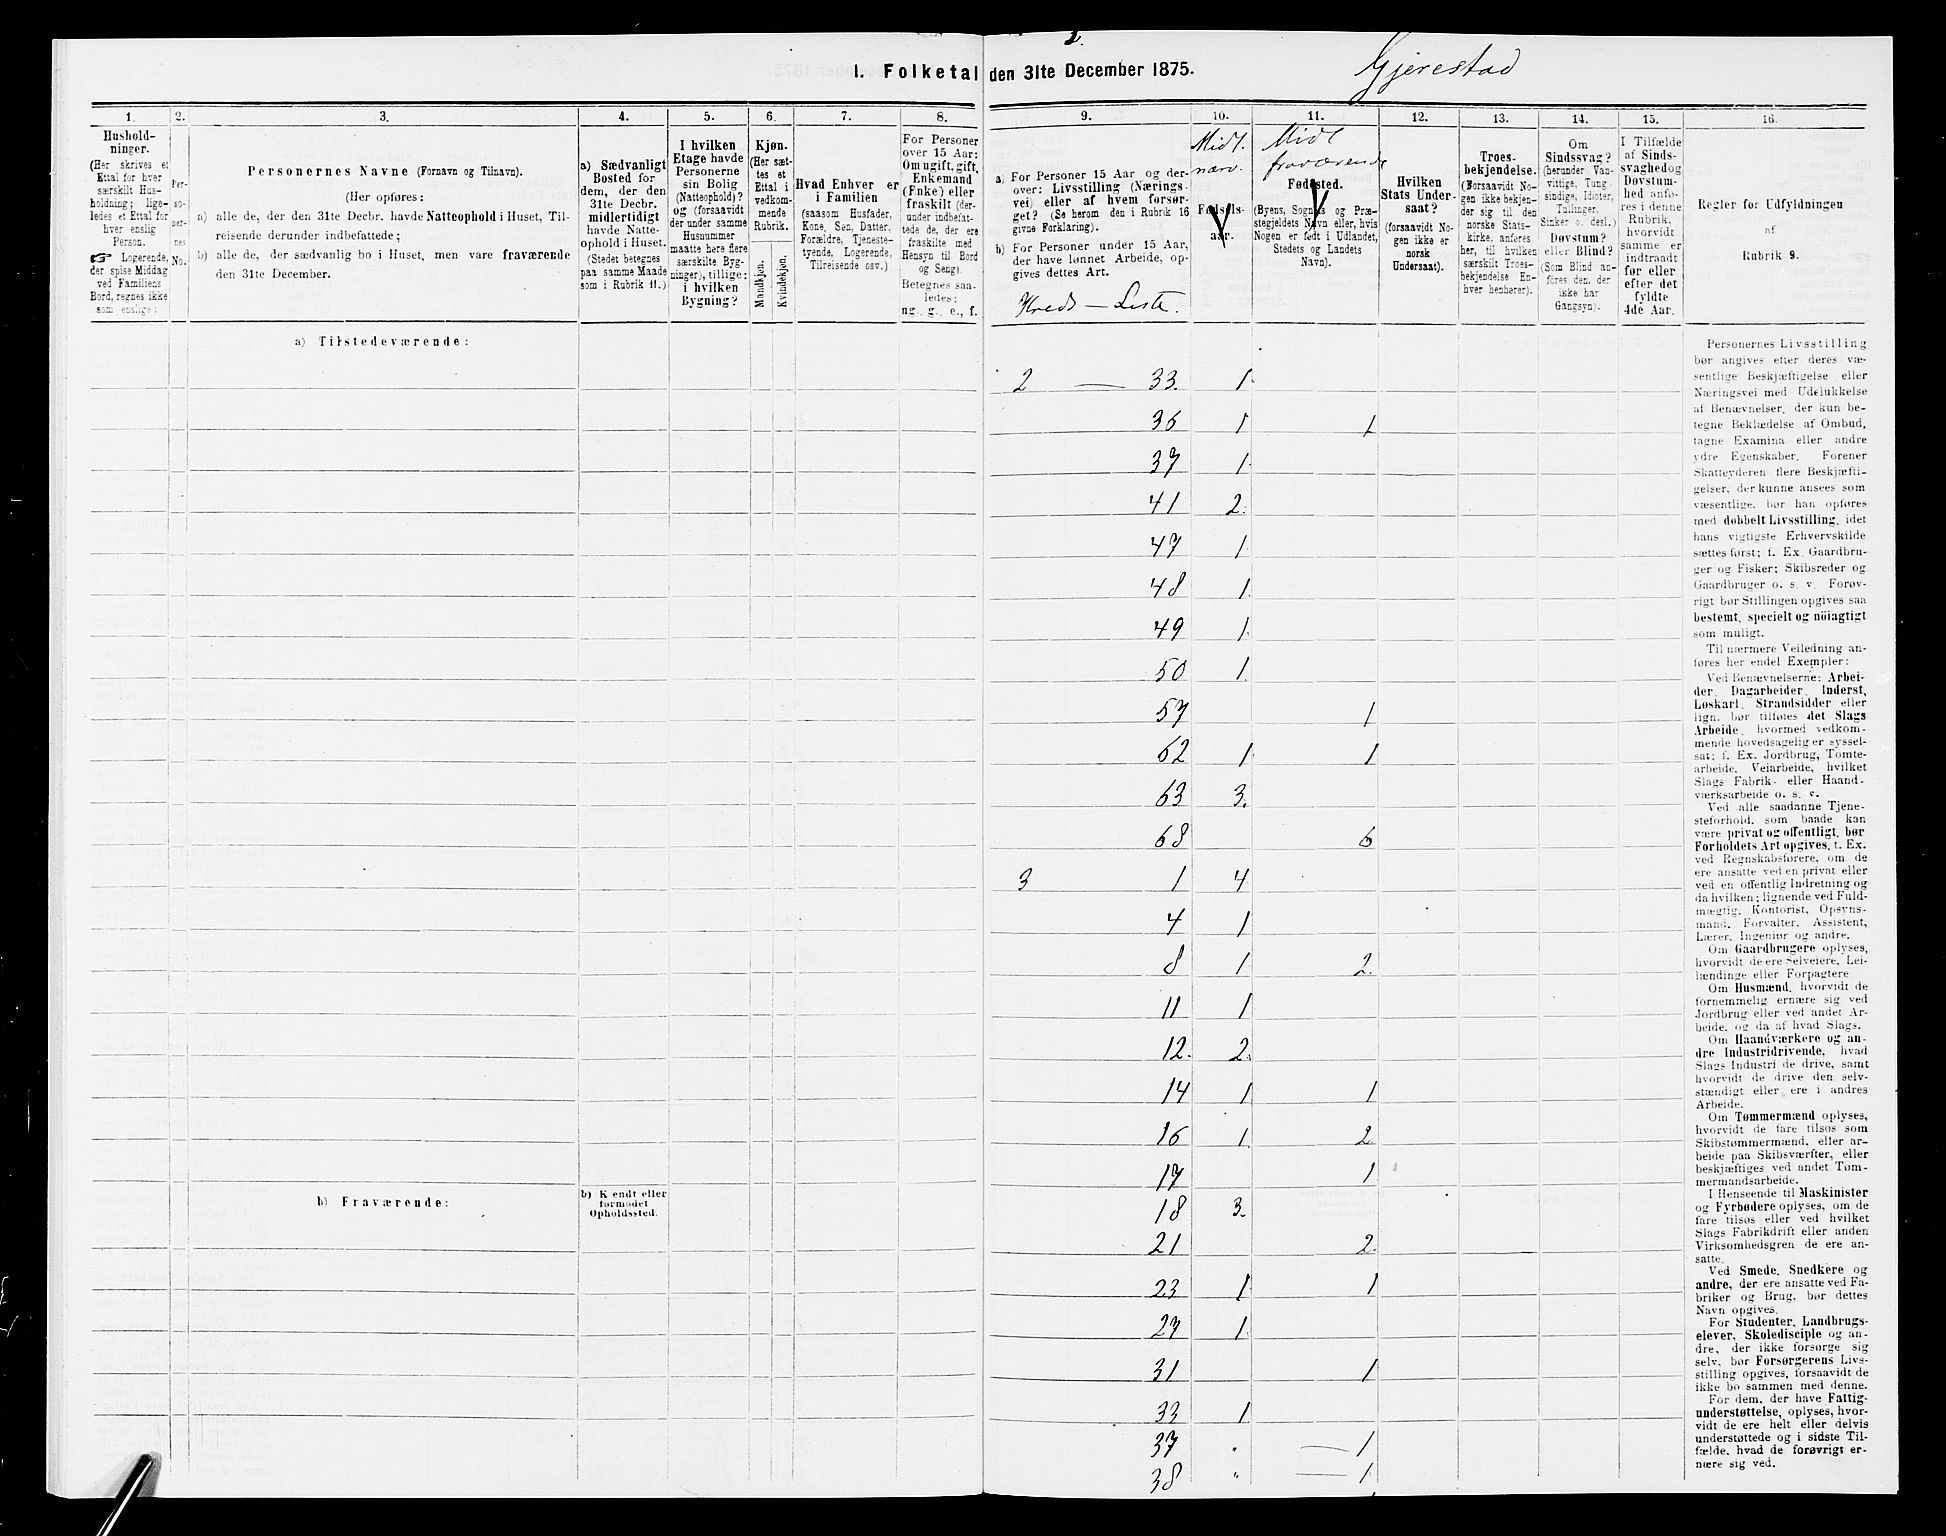 2.
1. Folketal den 31te December 1875.
Gjerestad
1.
Hushold-
ninger.
(Her skrives et
Ettal for hver
særskilt Hus-
holdning; lige-
ledes et Ettal for
hver enslig
Person.
☞ Logerende,
der spise Middag
ved Familiens
Bord, regnes ikke
som enslige).
2.
Per-
so-
ner-
nes
No.
3.
Personernes Navne (Fornavn og Tilnavn).
(Her opføres:
a) alle de, der den 31te Decbr. havde Natteophold i Huset, Til-
reisende derunder indbefattede;
b) alle de, der sædvanlig bo i Huset, men vare fraværende
den 31te December.
4.
a) Sædvanligt
Bosted for
dem, der den
31te Decbr.
midlertidigt
havde Natte-
ophold i Huset.
(Stedet betegnes
paa samme Maade
som i Rubrik 11.)
5.
I hvilken
Etage havde
Personerne
sin Bolig
(Natteophold)?
og (forsaavidt
der under samme
Husnummer
maatte være flere
særskilte Byg-
ninger), tillige:
i hvilken
Bygning?
6.
Kjøn.
(Her sæt-
tes et
Ettal i
vedkom-
mende
Rubrik.
Mandkjøn.
Kvindekjøn.
7.
Hvad Enhver er
i Familien
(saasom Husfader,
Kone, Søn, Datter,
Forældre, Tjeneste-
tyende, Logerende,
Tilreisende osv.)
8.
For Personer
over 15 Aar:
Om ugift, gift,
Enkemand
(Enke) eller
fraskilt (der-
under indbefat-
tede de, der ere
fraskilte med
Hensyn til Bord
og Seng).
Betegnes saa-
ledes:
ug., g., e., f.
9.
a) For Personer 15 Aar og der-
over: Livsstilling (Nærings-
vei) eller af hvem forsør-
get? (Se herom den i Rubrik 16
givne Forklaring).
b) For Personer under 15 Aar,
der have lønnet Arbeide, op-
gives dettes Art.
Kreds — Liste.
10.
Midl.
nærv.
Fødsels-
aar.
11.
Midl
fraværende
Fødested.
(Byens, Sognets og Præ-
stegjeldets Navn eller, hvis
Nogen er født i Udlandet,
Stedets og Landets
Navn).
12.
Hvilken
Stats Under-
saat?
(forsaavidt No-
gen ikke er
norsk
Undersaat).
13.
Troes-
bekjendelse.
(Forsaavidt No-
gen ikke bekjen-
der sig til den
norske Stats-
kirke, anføres
her, til hvilken
særskilt Troes-
bekjendelse En-
hver henhører).
14.
Om
Sindssvag?
(herunder Van-
vittige, Tung-
sindige, Idioter,
Tullinger,
Sinker o. desl.)
Døvstum?
eller Blind?
(Som Blind an-
føres den, der
ikke har
Gangsyn).
15.
I Tilfælde
af Sinds-
svaghed og
Døvstum-
hed anfø-
res i denne
Rubrik,
hvorvidt
samme er
indtraadt
før eller
efter det
fyldte
4de Aar.
16.
Regler for Udfyldningen
af
Rubrik 9.
a) Tilstedeværende:
2 — 33. 1.
36 1 1
37 1.
41 2.
47 1.
48 1.
49 1.
50 1.
57 1
62 1. 1
63 3.
68 6
3 1 4
4 1
8 1 2.
11 1
12. 2.
14 1 1
16 1. 2
17 1
b) Fraværende:
b) Kjendt eller
formodet
Opholdssted.
18 3.
21 2.
23 1 1
27 1.
31 1
33 1
37 " — 1
38 " — 1
Personernes Livsstilling
bør angives efter deres væ-
sentlige Beskjæftigelse eller
Næringsvei med Udelukkelse
af Benævnelser, der kun be-
tegne Beklædelse af Ombud,
tagne Examina eller andre
ydre Egenskaber. Forener
Skatteyderen flere Beskjæfti-
gelser, der kunne ansees som
væsentlige, bør han opføres
med dobbelt Livsstilling, idet
hans vigtigste Erhvervskilde
sættes først; f. Ex. Gaardbru-
ger og Fisker; Skibsreder og
Gaardbruger o. s. v. Forøv-
rigt bør Stillingen opgives saa
bestemt, specielt og nöiagtigt
som muligt.
Til nærmere Veiledning an-
føres her endel Exempler:
Ved Benævnelserne: Arbei-
der, Dagarbeider, Inderst,
Løskarl, Strandsidder eller
lign. bør tilføies det Slags
Arbeide, hvormed vedkom-
mende hovedsagelig er syssel-
sat; f. Ex. Jordbrug, Tomte-
arbeide, Veiarbeide, hvilket
Slags Fabrik- eller Haand-
værksarbeide o. s. v.
Ved alle saadanne Tjene-
steforhold, som baade kan
være privat og offentligt, bør
Forholdets Art opgives, f. Ex.
ved Regnskabsførere, om de
ere ansatte ved en privat eller
ved en offentlig Indretning og
da hvilken; lignende ved Fuld-
mægtig, Kontorist, Opsyns-
mand, Forvalter, Assistent,
Lærer, Ingeniør og andre.
Om Gaardbrugere oplyses,
hvorvidt de ere Selveiere, Lei-
lændinge eller Forpagtere
Om Husmænd, hvorvidt de
fornemmelig ernære sig ved
Jordbrug eller ved andet Ar-
beide, og da af hvad Slags.
Om Haandværkere og an-
dre Industridrivende, hvad
Slags Industri de drive, samt
hvorvidt de drive den selv-
stændigt eller ere i andres
Arbeide.
Om Tømmermænd oplyses,
hvorvidt de fare tilsøs som
Skibstømmermænd, eller ar-
beide paa Skibsværfter, eller
beskjæftiges ved andet Tøm-
mermandsarbeide.
I Henseende til Maskinister
og Fyrbødere oplyses, om de
fare tilsøs eller ved hvilket
Slags Fabrikdrift eller anden
Virksomhedsgren de ere an-
satte.
Ved Smede, Snedkere og
andre, der ere ansatte ved Fa-
briker og Brug, bør dettes
Navn opgives.
For Studenter, Landbrugs-
elever, Skoledisciple og an-
dre, der ikke forsørge sig
selv, bør Forsørgerens Livs-
stilling opgives, forsaavidt de
ikke bo sammen med denne.
For dem, der have Fattig-
understøttelse, oplyses, hvor-
vidt de ere helt eller delvis
understøttede og i sidste Til-
fælde, hvad de forøvrigt er-
nære sig ved.